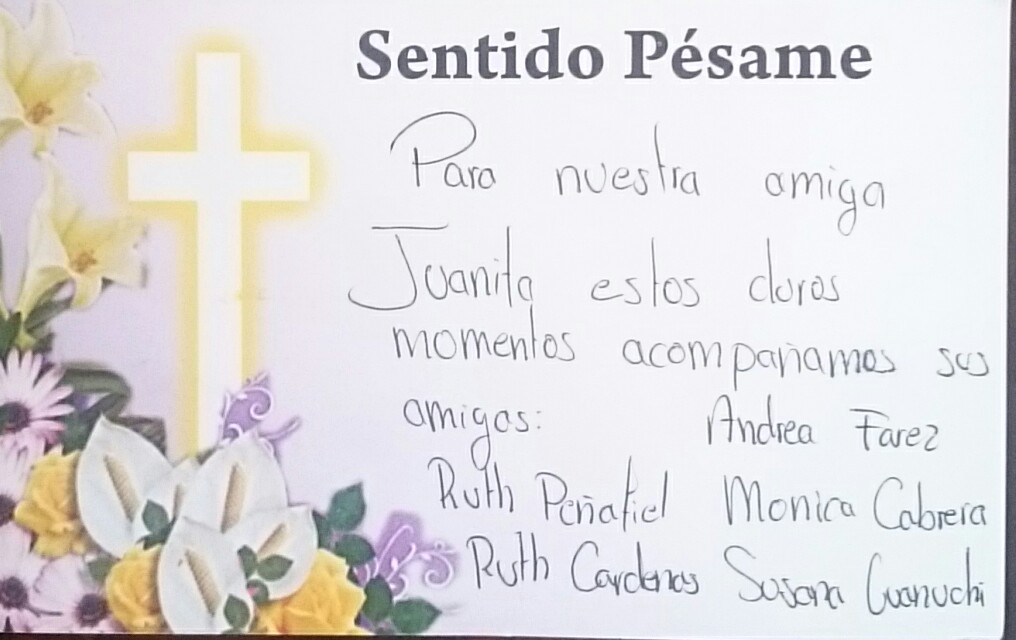 Sentido Pésame
Para nuestra amiga
Juanita estos duros
momentos acompañamos sus
amigos: Andrea Farez
Ruth Peñafiel Monica Cabrera
Ruth Cardenas Susana Guanuchi